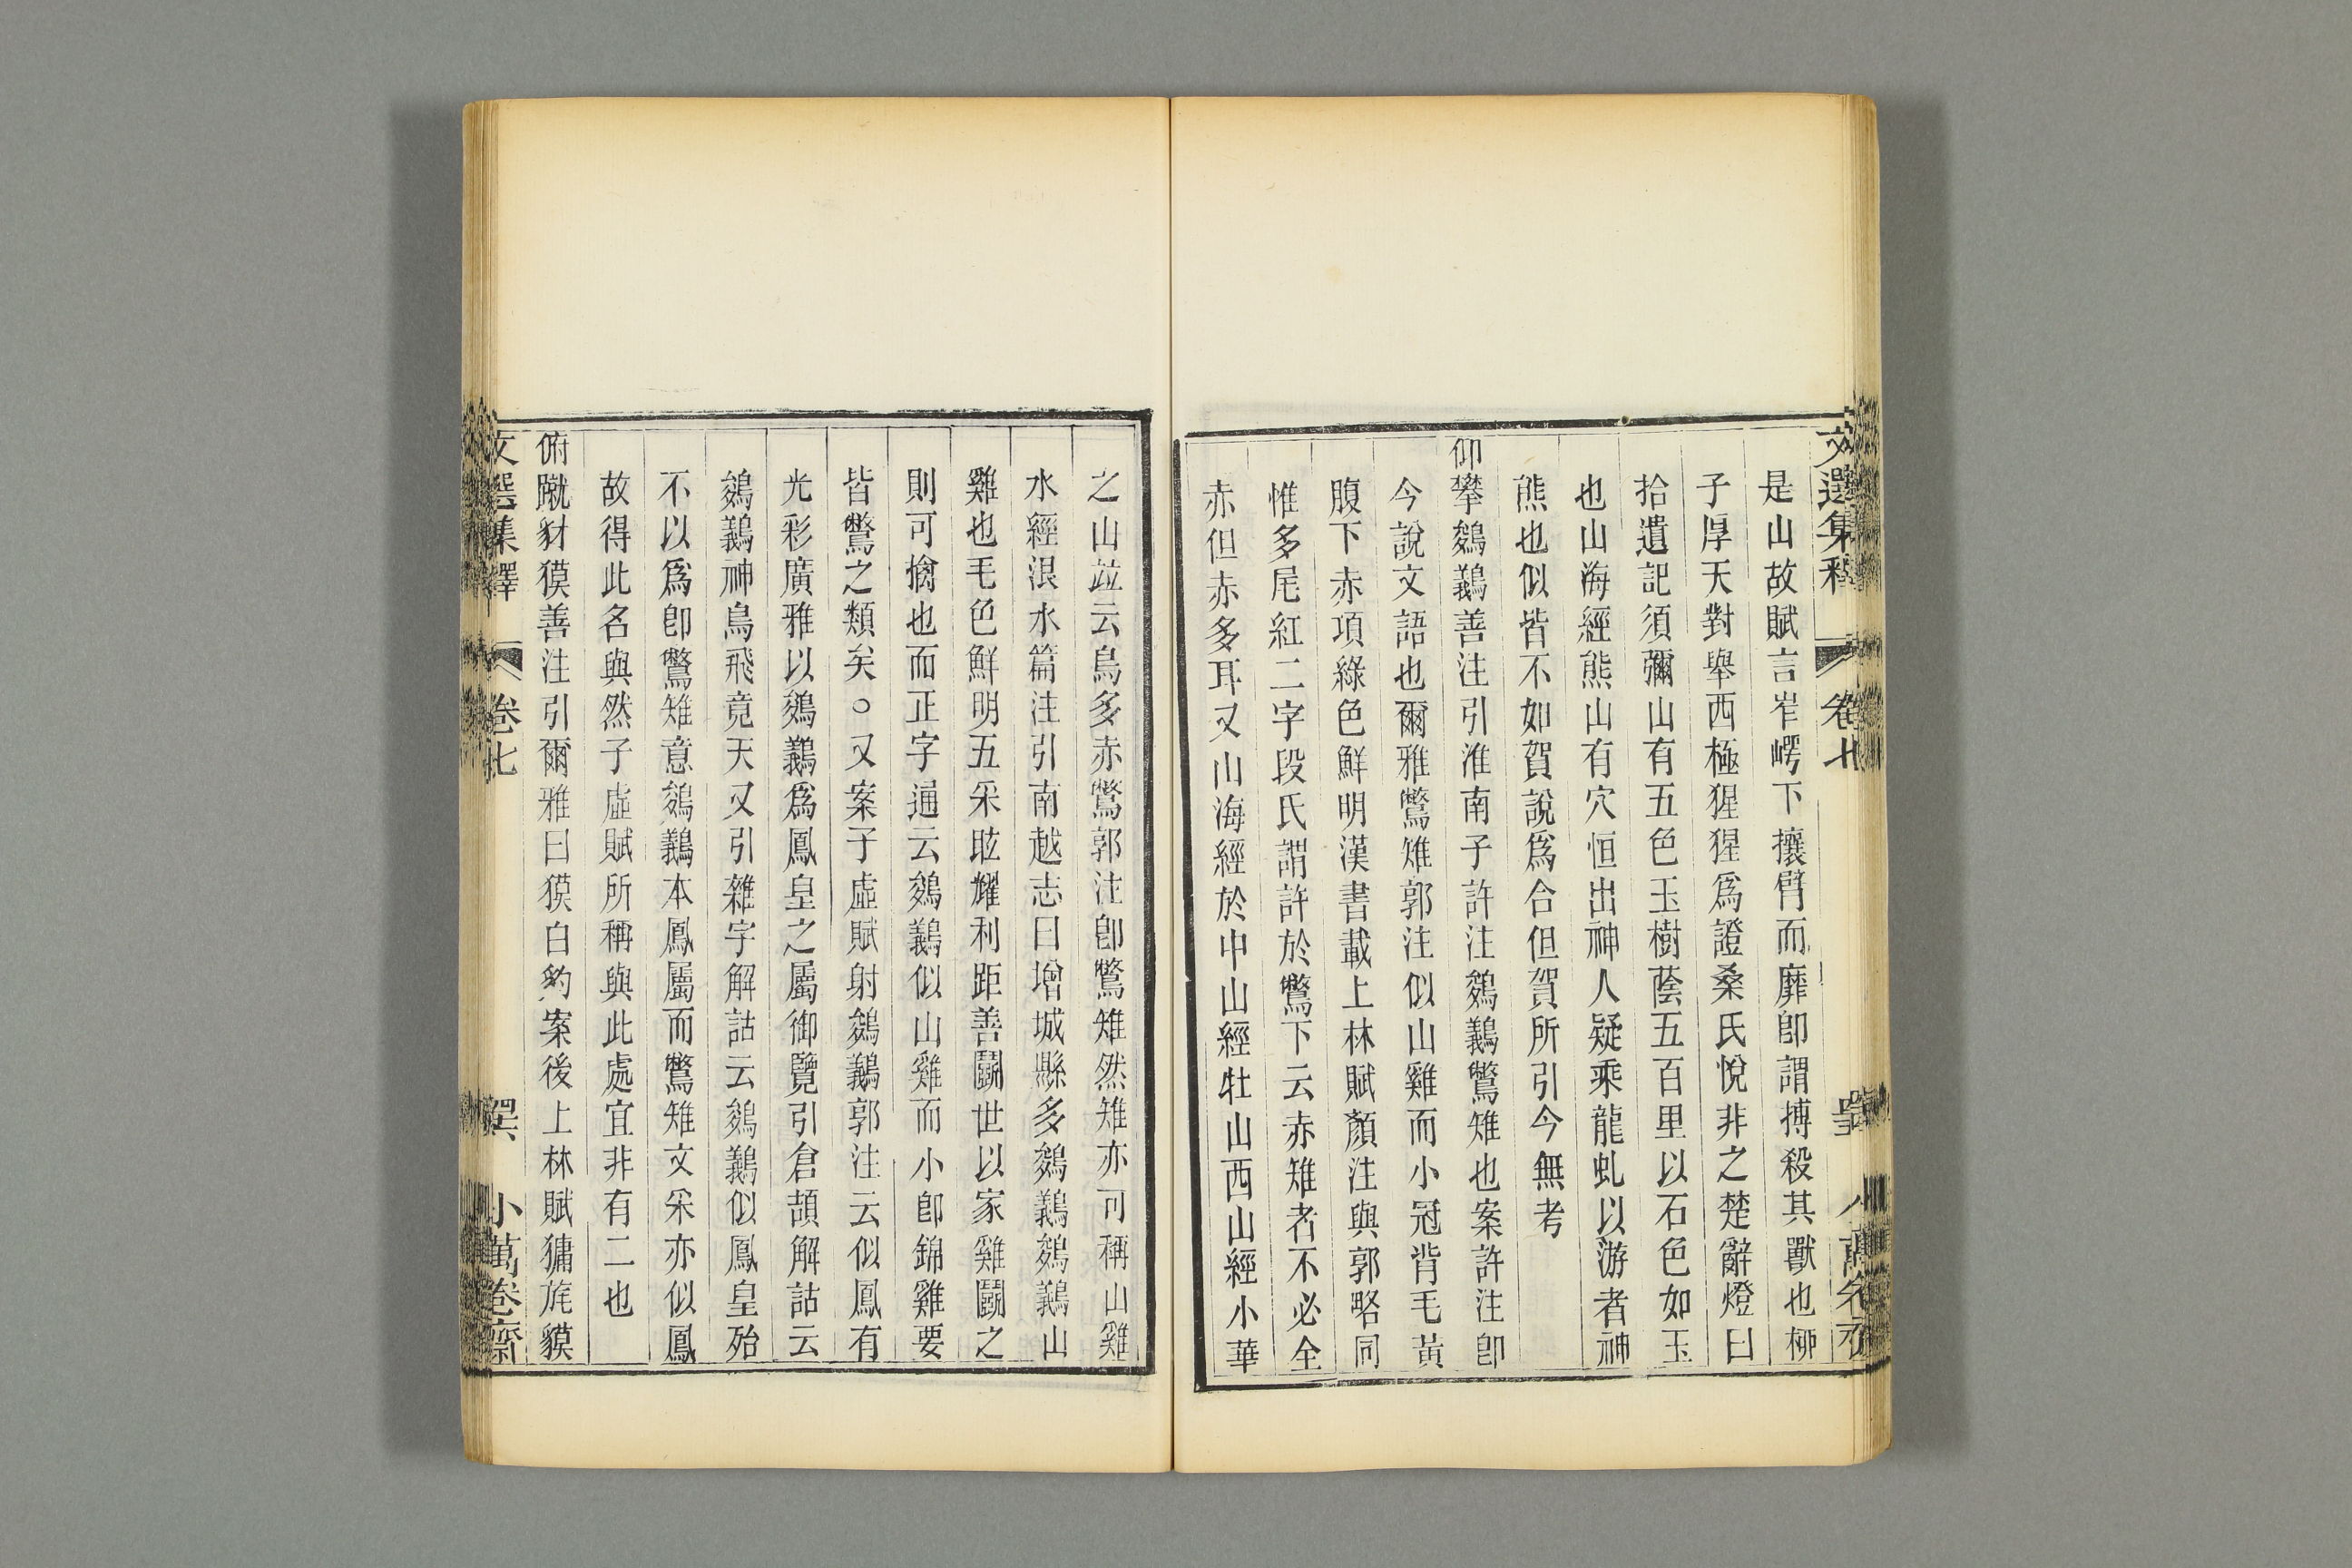 文選集釋 卷七
是山故賦言岝崿下攘臂而靡卽謂搏殺其獸也柳
子厚天對舉西極猩猩爲證桑氏悅非之楚辭燈曰
拾遺記須彌山有五色玉樹蔭五百里以石色如玉
也山海經熊山有穴恒出神人疑乘龍虬以游者神
熊也似皆不如賀說爲合但賀所引今無考
仰攀鵕鸃善注引淮南子許注鵕鸃鷩雉也案許注卽
今說文語也爾雅鷩雉郭注似山雞而小冠背毛黃
腹下赤項綠色鮮明漢書載上林賦顏注與郭略同
惟多尾紅二字段氏謂許於鷩下云赤雉者不必全
赤但赤多耳又山海經於中山經牡山西山經小華
之山竝云鳥多赤鷩郭注卽鷩雉然雉亦可稱山雞
水經泿水篇注引南越志曰增城縣多鵕鸃鵕鸃山
雞也毛色鮮明五采眩耀利距善鬭世以家雞鬭之
則可擒也而正字通云鵕鸃似山雞而小卽錦雞要
皆鷩之類矣○又案子虛賦射鵕鸃郭注云似鳳有
光彩廣雅以鵕鸃爲鳳皇之屬御覽引倉頡解詁云
鵕鸃神鳥飛竟天又引雜字解詁云鵕鸃似鳳皇殆
不以爲卽鷩雉意鵕鸃本鳳屬而鷩雉文采亦似鳳
故得此名與然子虛賦所稱與此處宜非有二也
俯蹴豺獏善注引爾雅曰獏白豹案後上林賦㺎旄貘
文選集釋 卷七 小萬卷齋